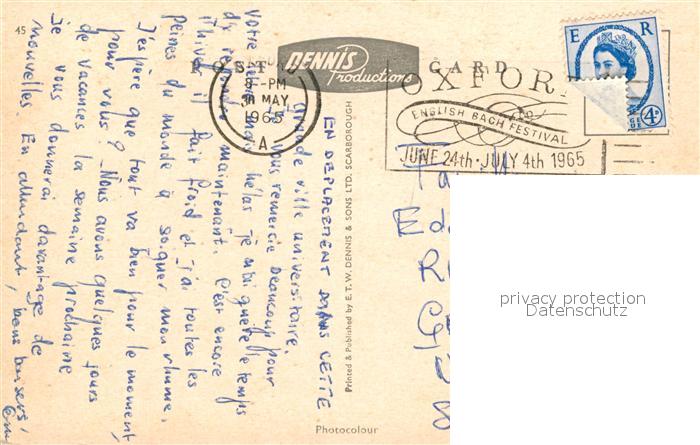 45
POST CARD
DENNIS
Productions
8 - PM
30 MAY
1965
A
OXFORD
ENGLISH BACH FESTIVAL
JUNE 24th - JULY 4th 1965
E R
4D
EN DEPLACEMENT DANS CETTE
grande ville universitaire.
Je vous remercie beaucoup pour
votre hélas je n'ai guère le temps
de répondre maintenant. C'est encore
l'hiver, il fait froid et j'ai toutes les
peines du monde à soigner mon rhume.
J'espère que tout va bien pour le moment,
pour vous? Nous avons quelques jours
de vacances la semaine prochaine
je vous donnerai davantage de
nouvelles. En attendant, bons baisers!
Printed & Published by E. T. W. DENNIS & SONS LTD. SCARBOROUGH
Photocolour
privacy protection
Datenschutz